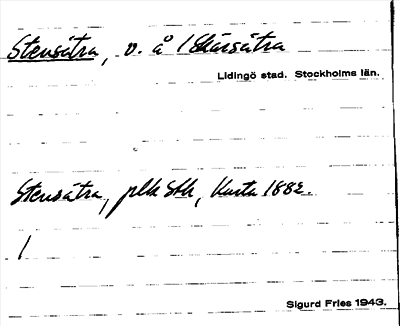 Stensätra, v. å / Skärsätra
Lidingö stad. Stockholms län.
Stensätra, plk Sth, Karta 1882.
/
Sigurd Fries 1943.